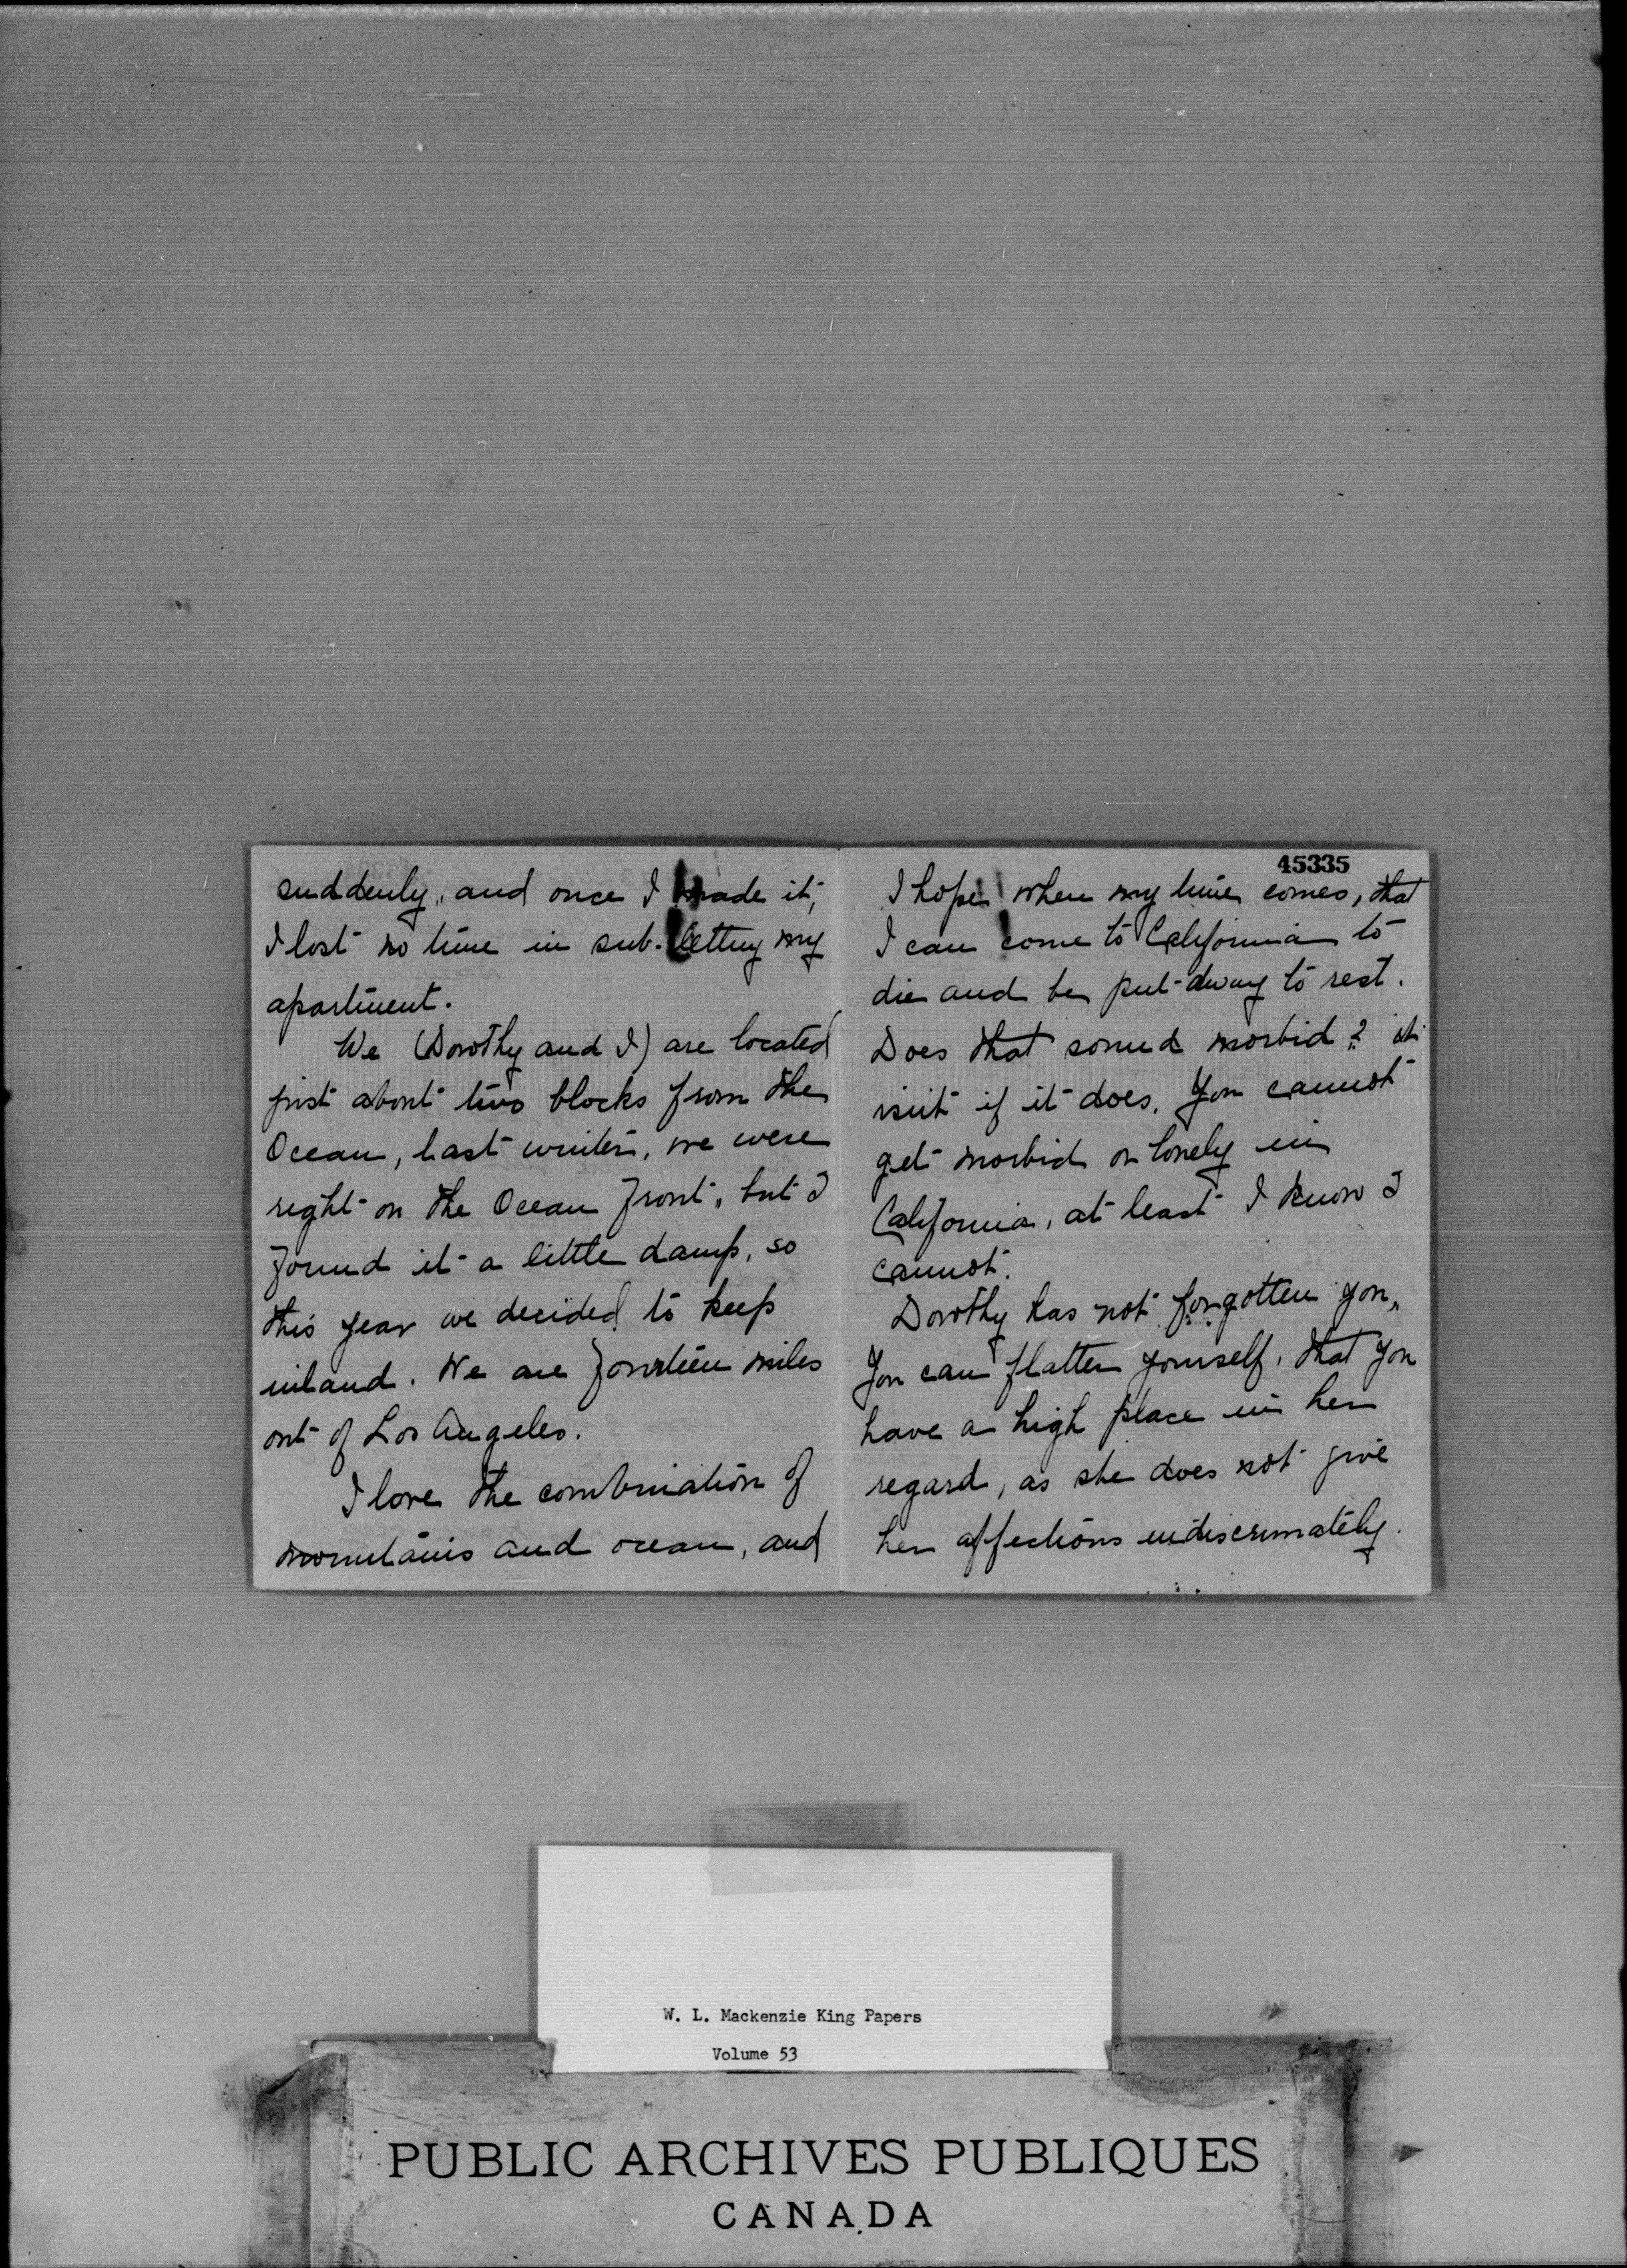 suddenly, and once I made it,
I lost no time in sub-letting my
apartment.
We (Dorothy and I) are located
just about two blocks from the
Ocean, last winter, we were
right on the Ocean front, but I
found it a little damp, so
this year we decided to keep
inland. We are fourteen miles
out of Los Angeles.
I love the combination of
mountains and ocean, and
45335
I hope when my time comes, that
I can come to California to
die and be put away to rest.
Does that sound morbid? it
isn't if it does. You cannot
get morbid or lonely in
California, at least I know I
cannot.
Dorothy has not forgotten you,
You can flatter yourself, that you
have a high place in her
regard, as she does not give
her affections indiscrimately.
W. L. Mackenzie King Papers
Volume 53
PUBLIC ARCHIVES PUBLIQUES
CANADA